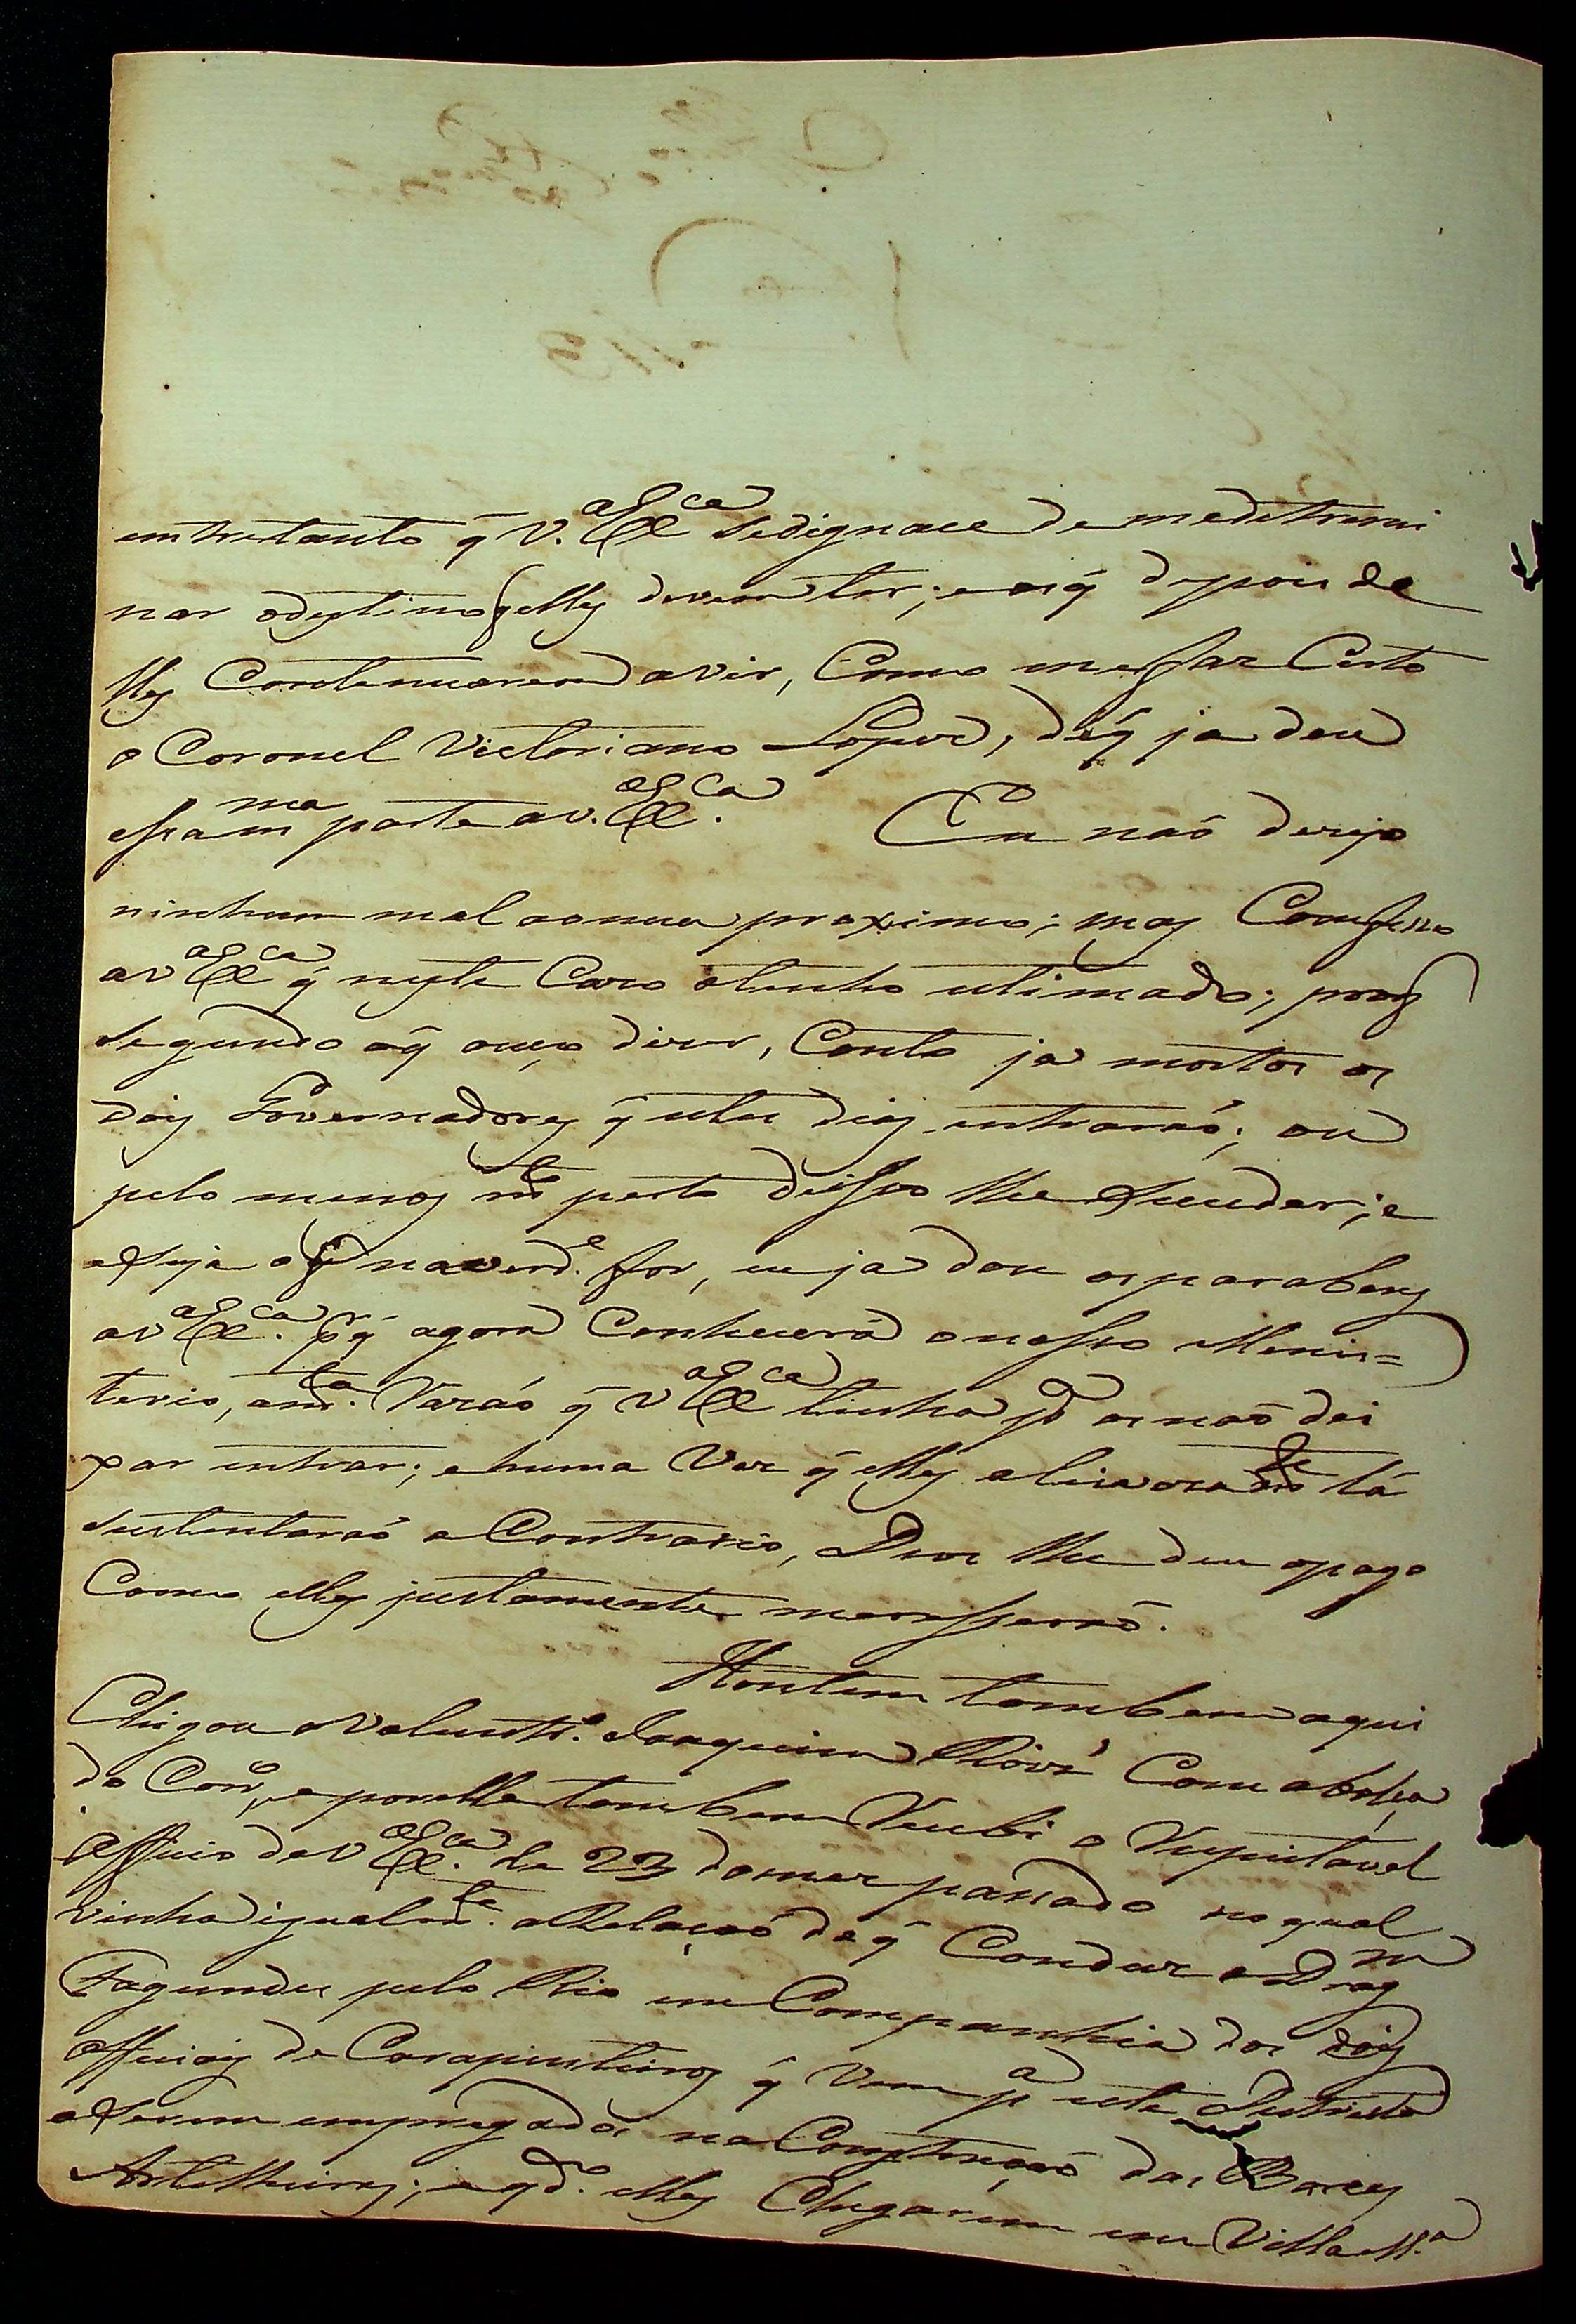 entretanto q̃ V. Exª Sedignace de medetremi
nar odestino q̃ elles devem ter; eos q̃ depois de
lles Continuarem avir, Como mefaz Certo
o Coronel Victoriano Lopes, deq̃ ja dou
esta mma parte a V. Exca. Eu naõ dezejo
ninhum mal aomeu proximo; mas Comfesso
aV Exca q̃ neste Cazo otenho estimado; poes
Segundo oq̃ ouço dizer, Conto ja mortos os
dois Governadores q̃ estes dias entraraõ; ou
pelo menos mto perto diisso lhe Suceder; e
eSeja oq̃ naverde. for, eu ja dou osparabens
aV Exca. pr q̃ agora Conhecerá onosso Menis=
terio, amta. Razaõ q̃ V Exca tinha pa os naõ dei
xar entrar; ehuma Vez q̃ elles aleivozamte lá
Sustentaraõ o Contrario, Deos lhe deu opago
Como elles justamente mereceraõ.
Hontem tambem aqui
Chegou o Voluntro. Joaquim Roiz' Com abolça
do Corro, eporelle tambem Recebi o Respeitavel
Officio de V Exca. de 23 domez passado no qual
vinha igualmte. aRelaçaõ deq̃ Conduz o Dragm
Fagundes pelo Rio em Companhia dos dois
Officiaes de Carapinteiros q̃ Vem pa este Destricto
aSerem empregados na Construçaõ das Barcas
Artelheiras; eqdo. elles Chegarem em Villa Mª